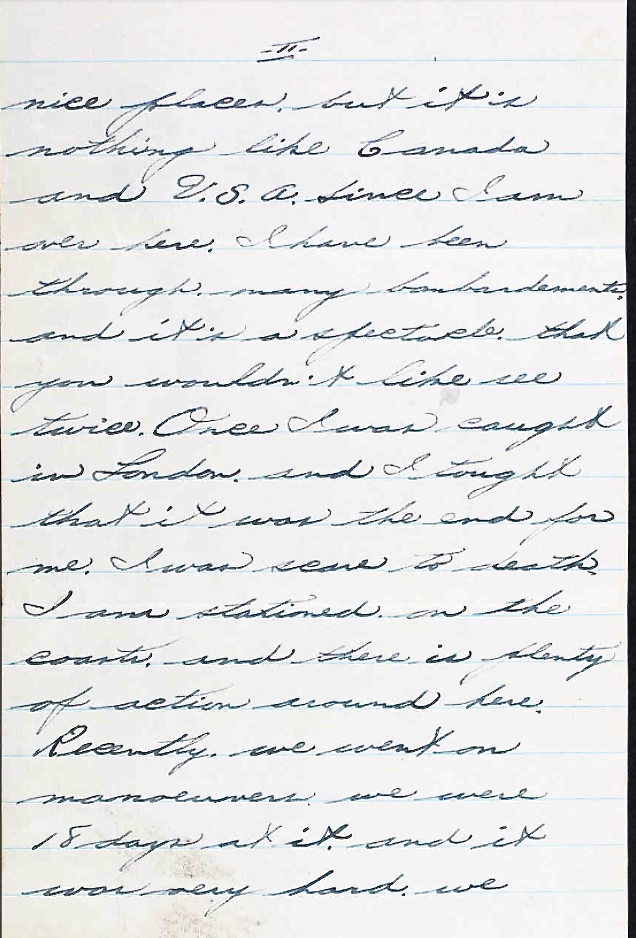 -II-
nice places. but it is
nothing like Canada
and U.S.A. since I am
over here. I have been
through. many bombardements.
and it's a spectacle. that
you wouldn't like see
twice. Once I was caught
in London. and I tought
that it was the end for
me. I was scare to death.
I am stationed. on the
coasts. and there is plenty
of action around here.
Recently. we went on
manoeuvers. we were
18 days at it. and it
was very hard. we